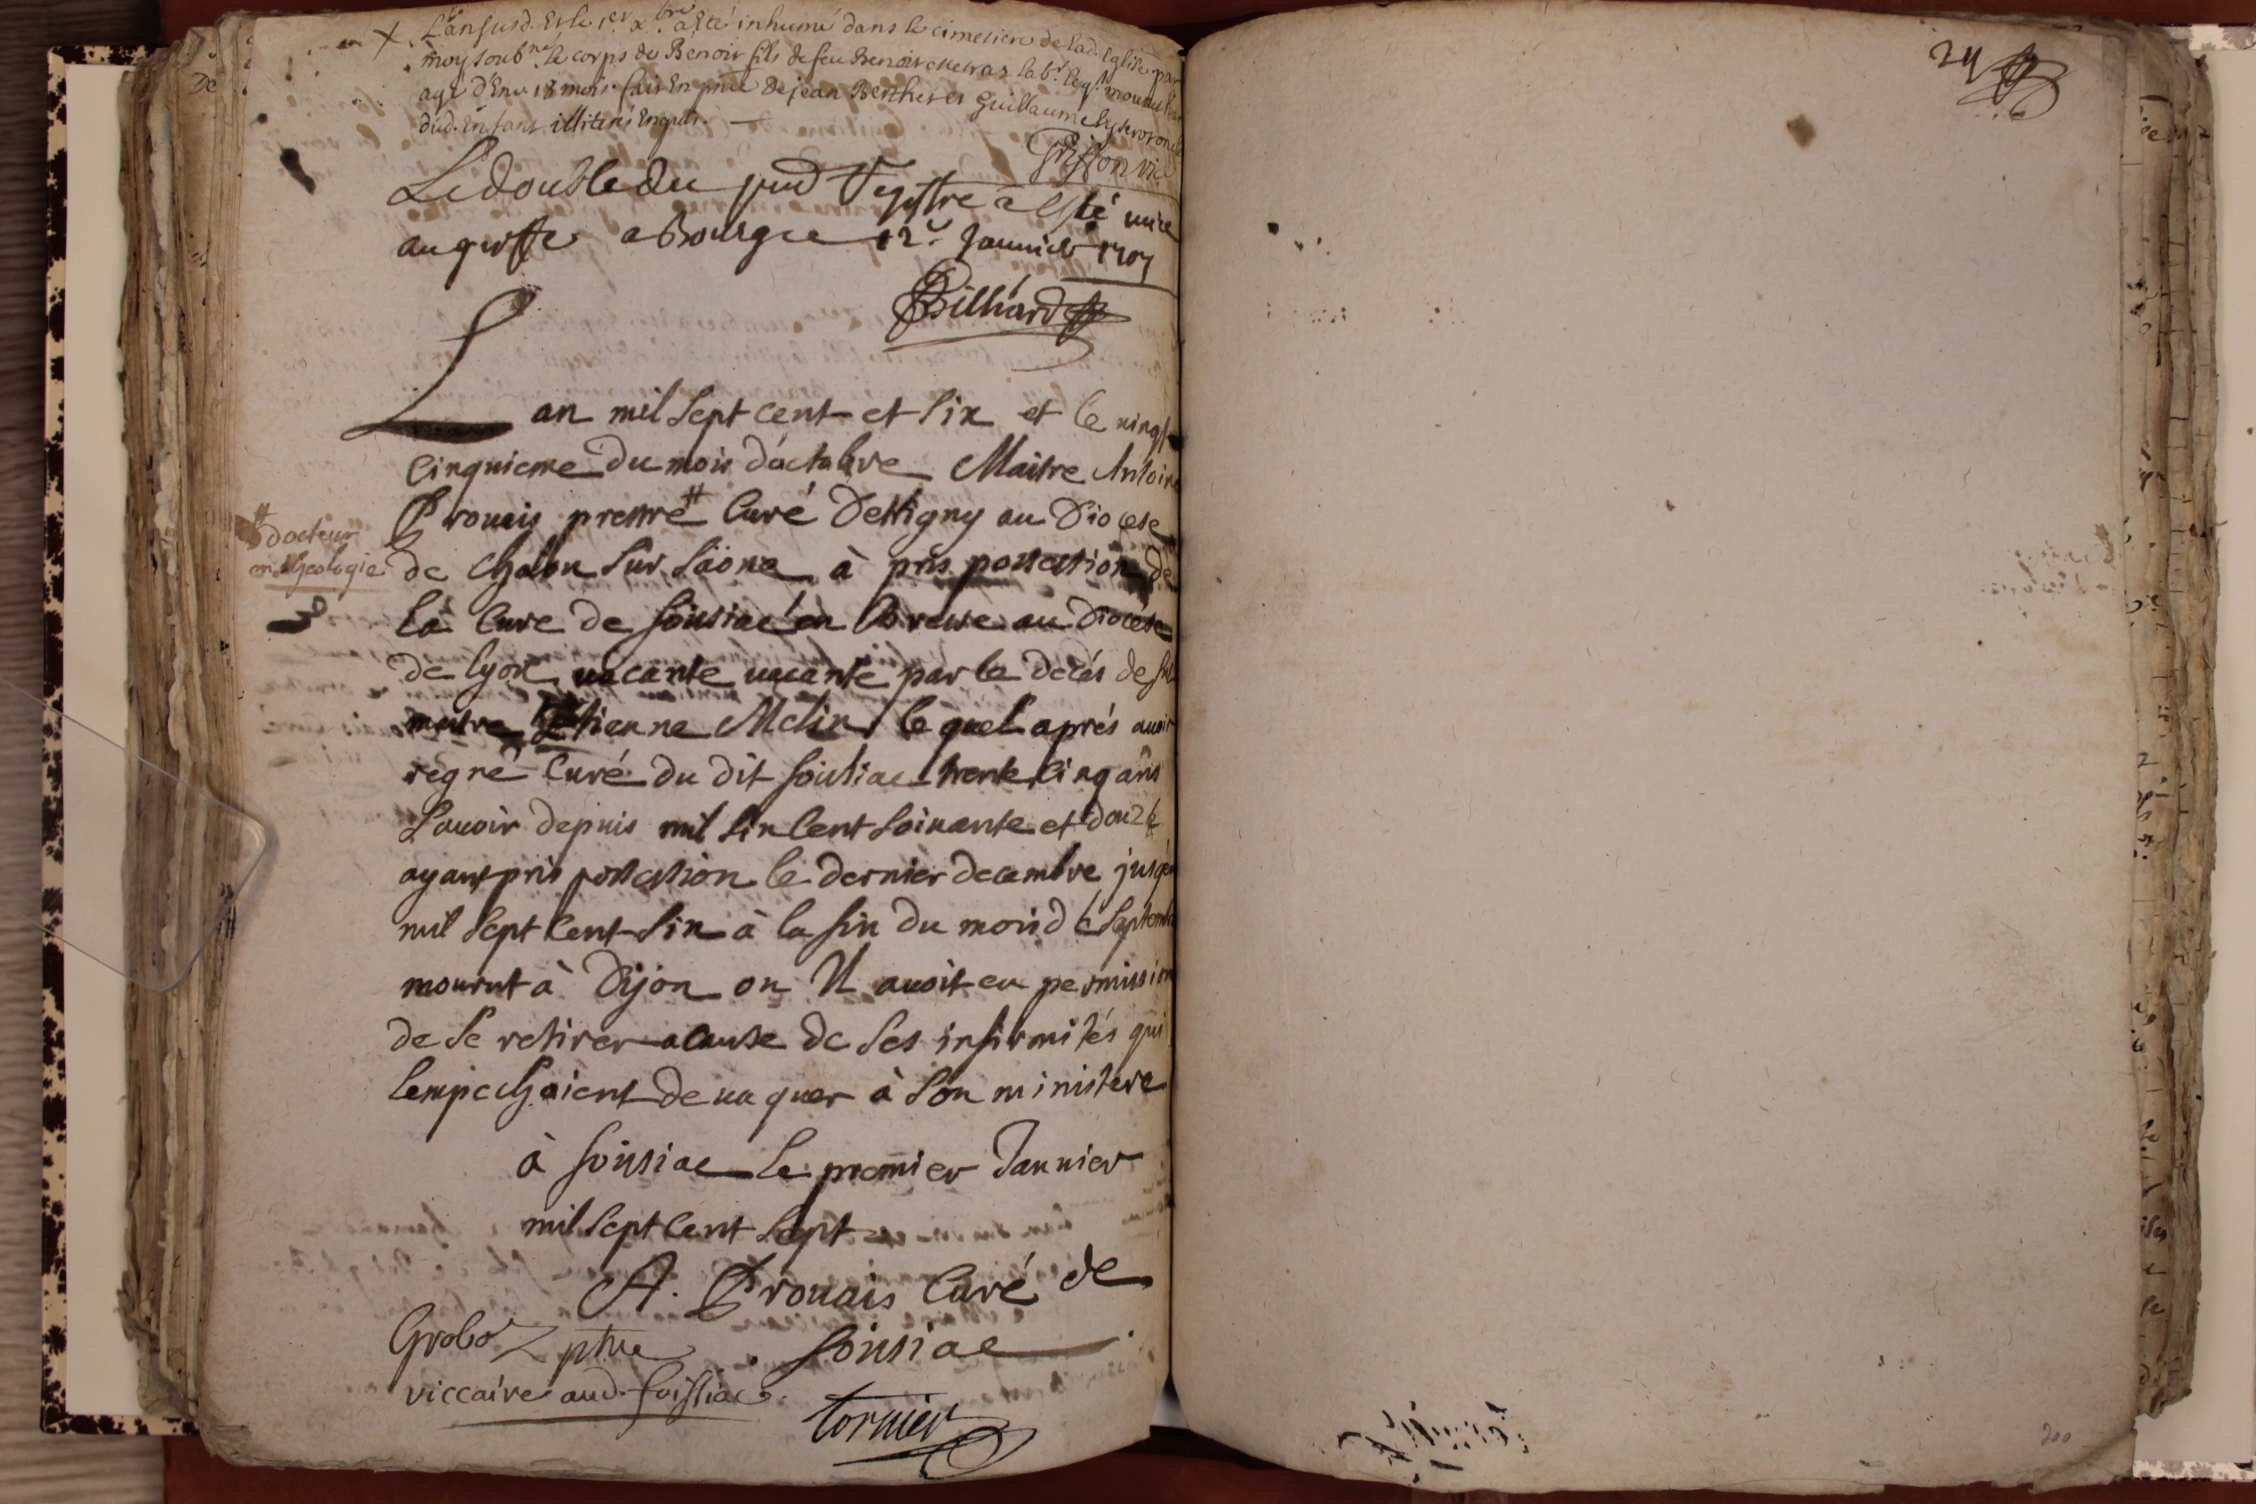 X L'an susd. Et le 1er xbre a Eté inhumé dans le cimetiere de lad. Eglise par
moy soubne. le corps de Benoit fils de feu Benoit
agé d'Env. 18 mois. fait En pnce de jean Berthet et Guillaume
dud. Enfant illiterés Enquis.
Le double du pnt Regystre a Esté mis
au greffe a Bourg ce 12e Januier 1707
Billiard
L an mil sept cent et six et le vingt
cinquieme du mois d'octobre Maitre Antoine
Prouais prestre # Curé Dettigny au Diocese
# docteur
en theologie
de chalon sur Saone à pris possession de
la Cure de foissiac en Bresse au Diocése
de lyon vacante vacante par le decés de
maitre Etienne Melin le quel aprés auoir
regné Curé du dit foissiac trente cinq ans
sauoir depuis mil six cent soixante et douze
ayant pris possession le dernier decembre
mil sept cent six à la fin du mois de Septembre
mourut à Dijon ou Il auoit eu permission
de se retirer a cause de ses infirmités qui
l'empechaient de vaquer à son ministere
à foissiac le premier Januier
mil sept cent sept
A. Prouais Curé de
foissiac
Groboz ptre
viccaire aud. foissiac.
tornier
24
200